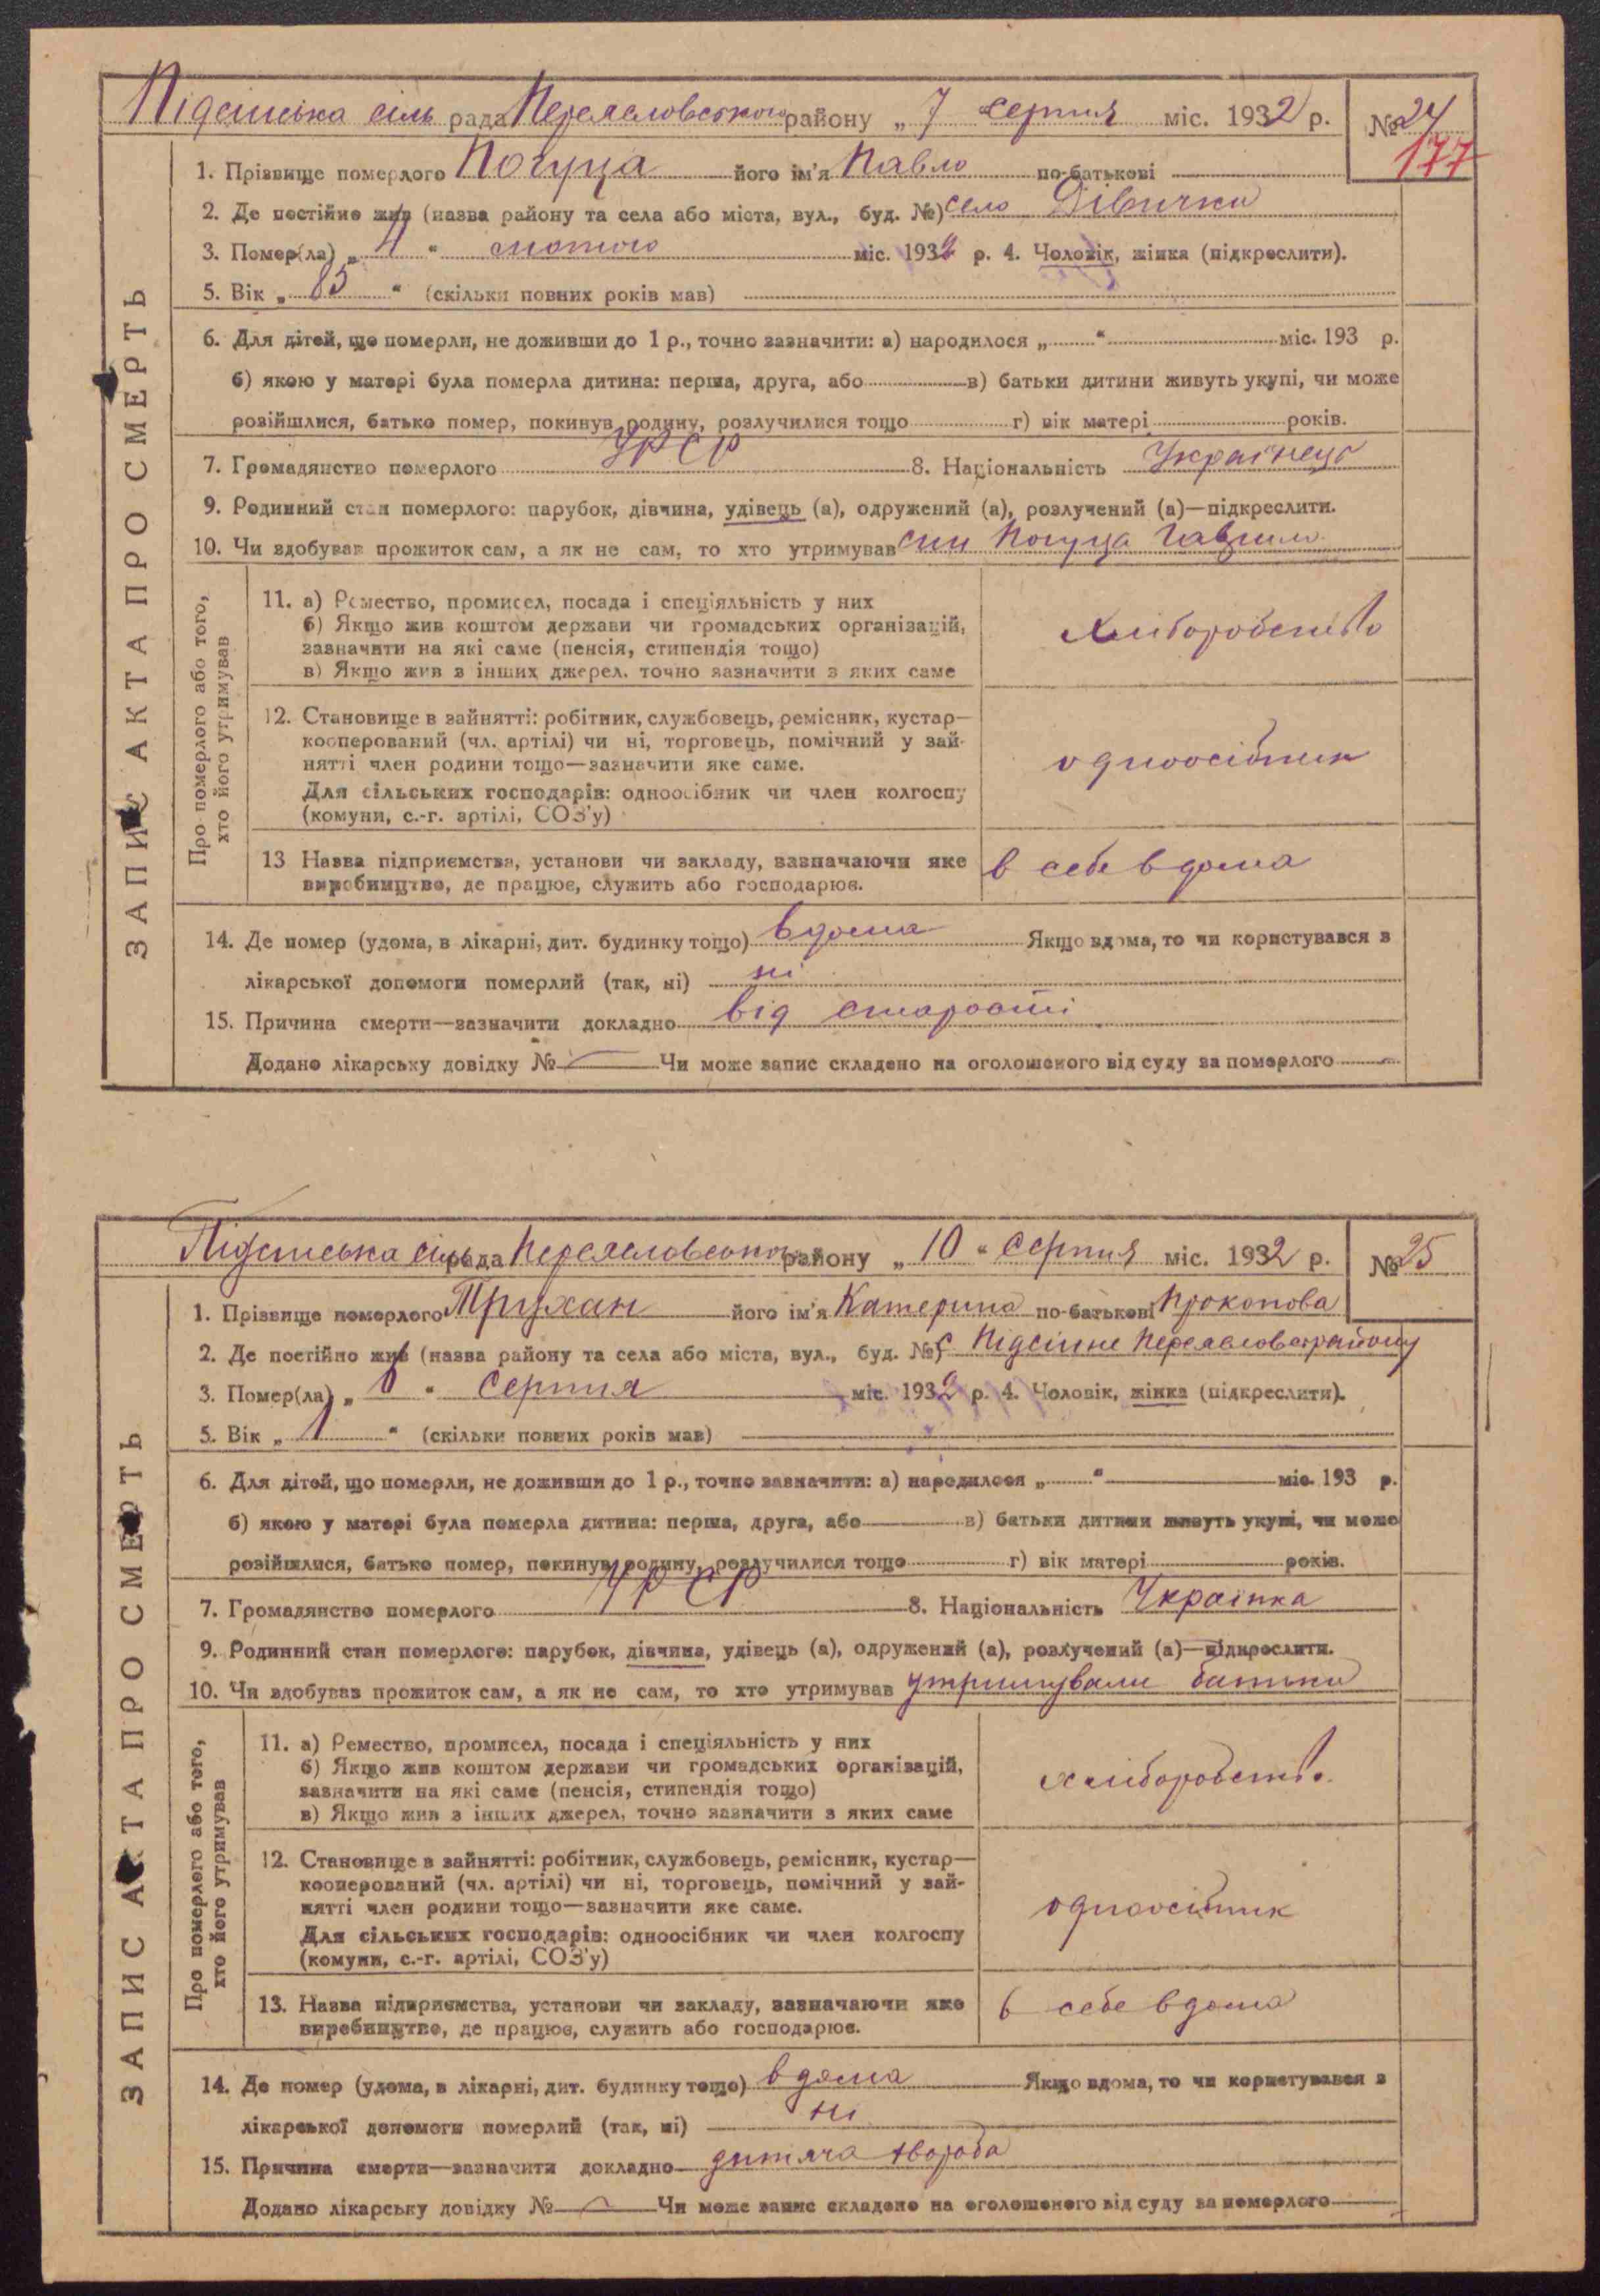 Підсінська сіль рада Переяславського району „ 7 серпня міс. 1932 р. № 24
177
1. Прізвище померлого Погуца його ім'я Павло по-батькові
2. Де постійно жив (назва району та села або міста, вул., буд. №) село Дівички
3. Помер(ла) „ 4 “ лютого міс. 1932 р. 4. Чоловік, жінка (підкреслити).
5. Вік „ 85 “ (скільки повних років мав)
6. Для дітей, що померли, не доживши до 1 р., точно зазначити: а) народилося „ “ міс. 193 р.
б) якою у матері була померла дитина: перша, друга, або в) батьки дитини живуть укупі, чи може
розійшлися, батько помер, покинув родину, розлучилися тощо г) вік матері років.
7. Громадянство померлого УРСР 8. Національність Українець
9. Родинний стан померлого: парубок, дівчина, удівець (а), одружений (а), розлучений (а)—підкреслити.
10. Чи здобував прожиток сам, а як не сам, то хто утримував син Погуца Гаврило
ЗАПИС АКТА ПРО СМЕРТЬ
Про померлого або того,
хто його утримував
11. а) Ремество, промисел, посада і спеціяльність у них
б) Якщо жив коштом держави чи громадських організацій,
зазначити на які саме (пенсія, стипендія тощо)
в) Якщо жив з інших джерел, точно зазначити з яких саме
хліборобство
12. Становище в зайнятті: робітник, службовець, ремісник, кустар—
кооперований (чл. артілі) чи ні, торговець, помічний у зай-
нятті член родини тощо—зазначити яке саме.
Для сільських господарів: одноосібник чи член колгоспу
(комуни, с.-г. артілі, СОЗ'у)
одноосібник
13 Назва підприємства, установи чи закладу, зазначаючи яке
виробництво, де працює, служить або господарює.
в себе вдома
14. Де помер (удома, в лікарні, дит. будинку тощо) вдома Якщо вдома, то чи користувався з
лікарської допомоги померлий (так, ні) ні
15. Причина смерти—зазначити докладно від старости
Додано лікарську довідку № — Чи може запис складено на оголошеного від суду за померлого —
Підсінська сіль рада Переяславського району „ 10 “ серпня міс. 1932 р. № 25
1. Прізвище померлого Трухан його ім'я Катерина по-батькові Прокопова
2. Де постійно жив (назва району та села або міста, вул., буд. №) с Підсінне Переяславс району
3. Помер(ла) „ 6 “ серпня міс. 1932 р. 4. Чоловік, жінка (підкреслити).
5. Вік „ 1 “ (скільки повних років мав)
6. Для дітей, що померли, не доживши до 1 р., точно зазначити: а) народилося „ “ міс. 193 р.
б) якою у матері була померла дитина: перша, друга, або в) батьки дитини живуть укупі, чи може
розійшлися, батько помер, покинув родину, розлучилися тощо г) вік матері років.
7. Громадянство померлого УРСР 8. Національність Українка
9. Родинний стан померлого: парубок, дівчина, удівець (а), одружений (а), розлучений (а)—підкреслити.
10. Чи здобував прожиток сам, а як не сам, то хто утримував утримували батьки
ЗАПИС АКТА ПРО СМЕРТЬ
Про померлого або того,
хто його утримував
11. а) Ремество, промисел, посада і спеціяльність у них
б) Якщо жив коштом держави чи громадських організацій,
зазначити на які саме (пенсія, стипендія тощо)
в) Якщо жив з інших джерел, точно зазначити з яких саме
хліборобство.
12. Становище в зайнятті: робітник, службовець, ремісник, кустар—
кооперований (чл. артілі) чи ні, торговець, помічний у зай-
нятті член родини тощо—зазначити яке саме.
Для сільських господарів: одноосібник чи член колгоспу
(комуни, с.-г. артілі, СОЗ'у)
одноосібник
13. Назва підприємства, установи чи закладу, зазначаючи яке
виробництво, де працює, служить або господарює.
в себе вдома
14. Де помер (удома, в лікарні, дит. будинку тощо) вдома Якщо вдома, то чи користувався з
лікарської допомоги померлий (так, ні) ні
15. Причина смерти—зазначити докладно дитяча хвороба
Додано лікарську довідку № — Чи може запис складено на оголошеного від суду за померлого —